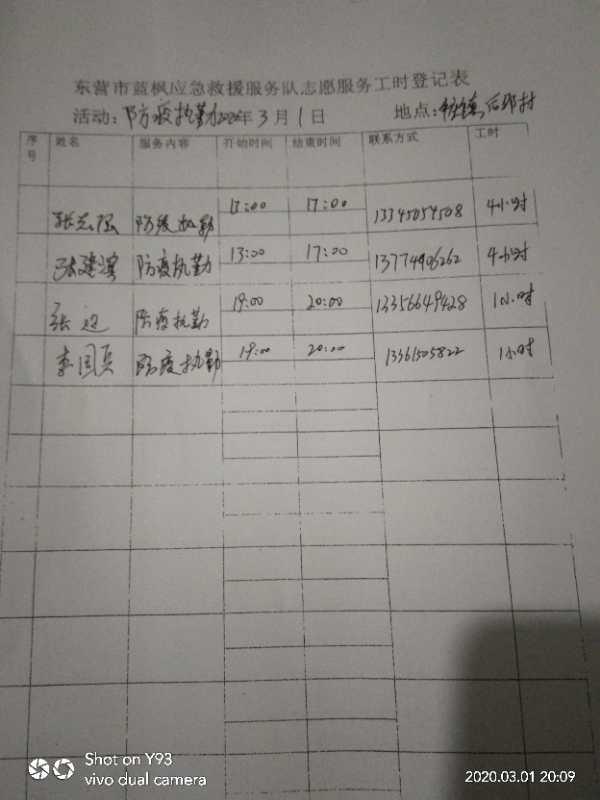 东营市蓝枫应急救援服务队志愿服务工时登记表
活动：防疫执勤2020年3月1日 地点：镇后邢村
序号 姓名 服务内容 开始时间 结束时间 联系方式 工时
张志强 防疫执勤 13:00 17:00 13345054508 4小时
张建滨 防疫执勤 13:00 17:00 13774906262 4小时
张 防疫执勤 19:00 20:00 13356649428 1小时
李国兵 防疫执勤 19:00 20:00 13361505822 1小时
Shot on Y93
vivo dual camera
2020.03.01 20:09